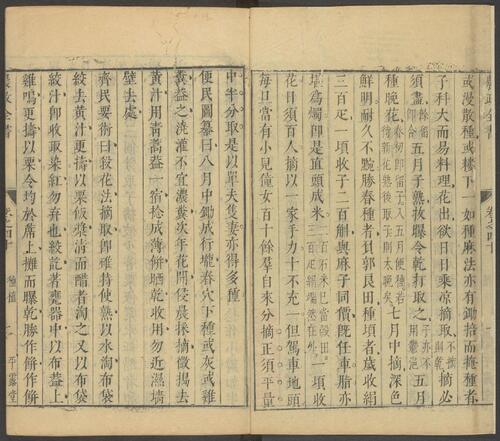 或漫散種或耬下一如種麻法亦有鋤掊而掩種者
子科大而易料理花出欲日日乘凉摘取不摘則乾摘必
須盡餘留即合五月子熟拔曝令乾打取之子亦不用鬱浥五月
種晚花春初即留子入五月便種若待新花熟後取子則太晚矣七月中摘深色
鮮明耐久不黦勝春種者負郭良田種頃者歲收絹
三百疋一頃收子二百斛與麻子同價既任車脂亦
堪為燭即是直頭成米二百石米已當穀田三百疋絹端然在外一頃收
花日須百人摘以一家手力十不充一但駕車地頭
每旦當有小兒僮女百十餘羣自來分摘正須平量
中半分取是以單夫隻妻亦得多種
便民圖纂曰八月中鋤成行壟舂穴下種或灰或雞
糞蓋之澆灌不宜濃糞次年花開侵晨採摘微搗去
黃汁用青蒿蓋一宿捻成薄餅晒乾收用勿近濕墻
壁去處
齊民要術曰殺花法摘取即碓搗使熟以水淘布袋
絞去黃汁更擣以粟飯漿清而醋者淘之又以布袋
絞汁即收取染紅勿棄也絞訖者甕器中以布蓋上
雞鳴更擣以粟令均於席上攤而曝乾勝作餅作餅
農政全書 卷之四十 種植 二 平露堂